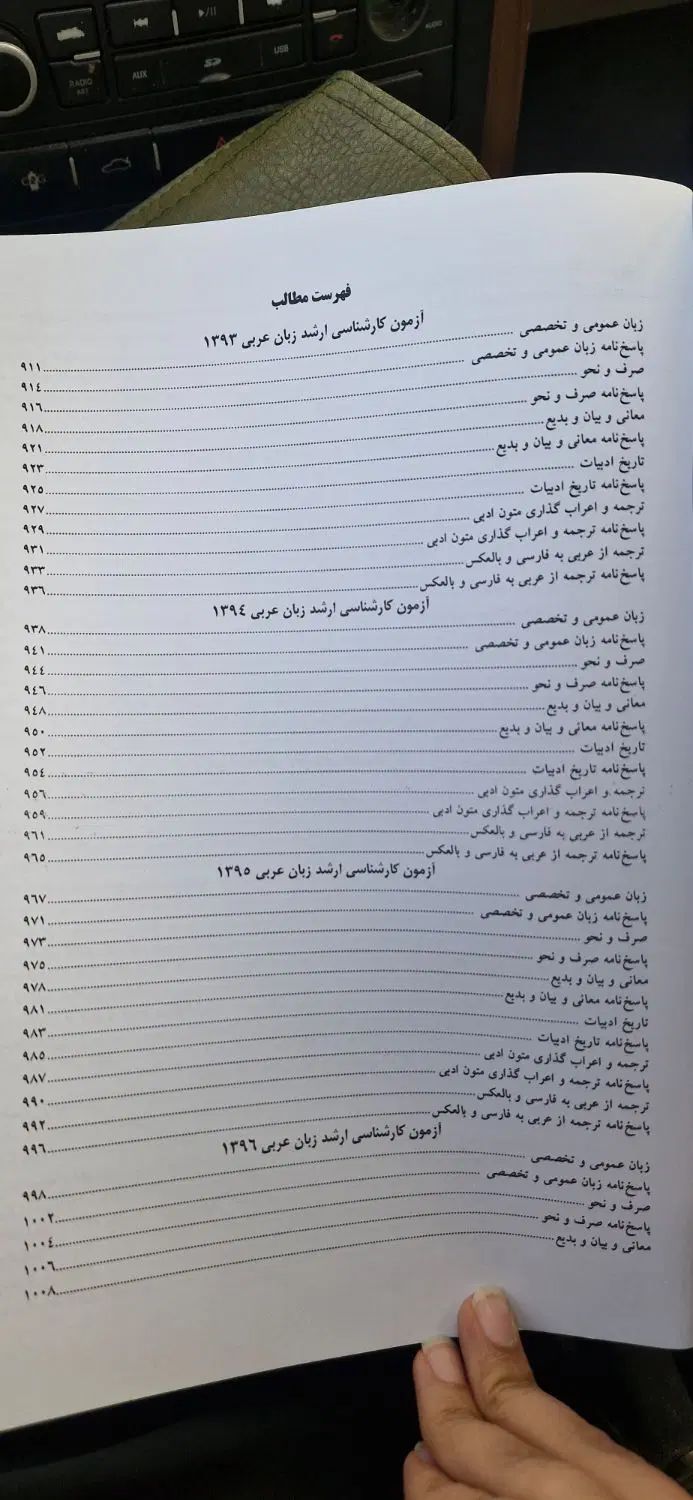 AUDIO
RADIO
AST
AUX
USB
فهرست مطالب
آزمون کارشناسی ارشد زبان عربی ۱۳۹۳
زبان عمومی و تخصصی ........ ۹۱۱
پاسخ‌نامه زبان عمومی و تخصصی ........ ۹۱۴
صرف و نحو ........ ۹۱۶
پاسخ‌نامه صرف و نحو ........ ۹۱۸
معانی و بیان و بدیع ........ ۹۲۱
پاسخ‌نامه معانی و بیان و بدیع ........ ۹۲۳
تاریخ ادبیات ........ ۹۲۵
پاسخ‌نامه تاریخ ادبیات ........ ۹۲۷
ترجمه و اعراب گذاری متون ادبی ........ ۹۲۹
پاسخ‌نامه ترجمه و اعراب گذاری متون ادبی ........ ۹۳۱
ترجمه از عربی به فارسی و بالعکس ........ ۹۳۳
پاسخ‌نامه ترجمه از عربی به فارسی و بالعکس ........ ۹۳۶
آزمون کارشناسی ارشد زبان عربی ۱۳۹۴
زبان عمومی و تخصصی ........ ۹۳۸
پاسخ‌نامه زبان عمومی و تخصصی ........ ۹۴۱
صرف و نحو ........ ۹۴۴
پاسخ‌نامه صرف و نحو ........ ۹۴۶
معانی و بیان و بدیع ........ ۹۴۸
پاسخ‌نامه معانی و بیان و بدیع ........ ۹۵۰
تاریخ ادبیات ........ ۹۵۲
پاسخ‌نامه تاریخ ادبیات ........ ۹۵۴
ترجمه و اعراب گذاری متون ادبی ........ ۹۵۶
پاسخ‌نامه ترجمه و اعراب گذاری متون ادبی ........ ۹۵۹
ترجمه از عربی به فارسی و بالعکس ........ ۹۶۱
پاسخ‌نامه ترجمه از عربی به فارسی و بالعکس ........ ۹۶۵
آزمون کارشناسی ارشد زبان عربی ۱۳۹۵
زبان عمومی و تخصصی ........ ۹۶۷
پاسخ‌نامه زبان عمومی و تخصصی ........ ۹۷۱
صرف و نحو ........ ۹۷۳
پاسخ‌نامه صرف و نحو ........ ۹۷۵
معانی و بیان و بدیع ........ ۹۷۸
پاسخ‌نامه معانی و بیان و بدیع ........ ۹۸۱
تاریخ ادبیات ........ ۹۸۳
پاسخ‌نامه تاریخ ادبیات ........ ۹۸۵
ترجمه و اعراب گذاری متون ادبی ........ ۹۸۷
پاسخ‌نامه ترجمه و اعراب گذاری متون ادبی ........ ۹۹۰
ترجمه از عربی به فارسی و بالعکس ........ ۹۹۲
پاسخ‌نامه ترجمه از عربی به فارسی و بالعکس ........ ۹۹۶
آزمون کارشناسی ارشد زبان عربی ۱۳۹۶
زبان عمومی و تخصصی ........ ۹۹۸
پاسخ‌نامه زبان عمومی و تخصصی ........ ۱۰۰۲
صرف و نحو ........ ۱۰۰۴
پاسخ‌نامه صرف و نحو ........ ۱۰۰۶
معانی و بیان و بدیع ........ ۱۰۰۸